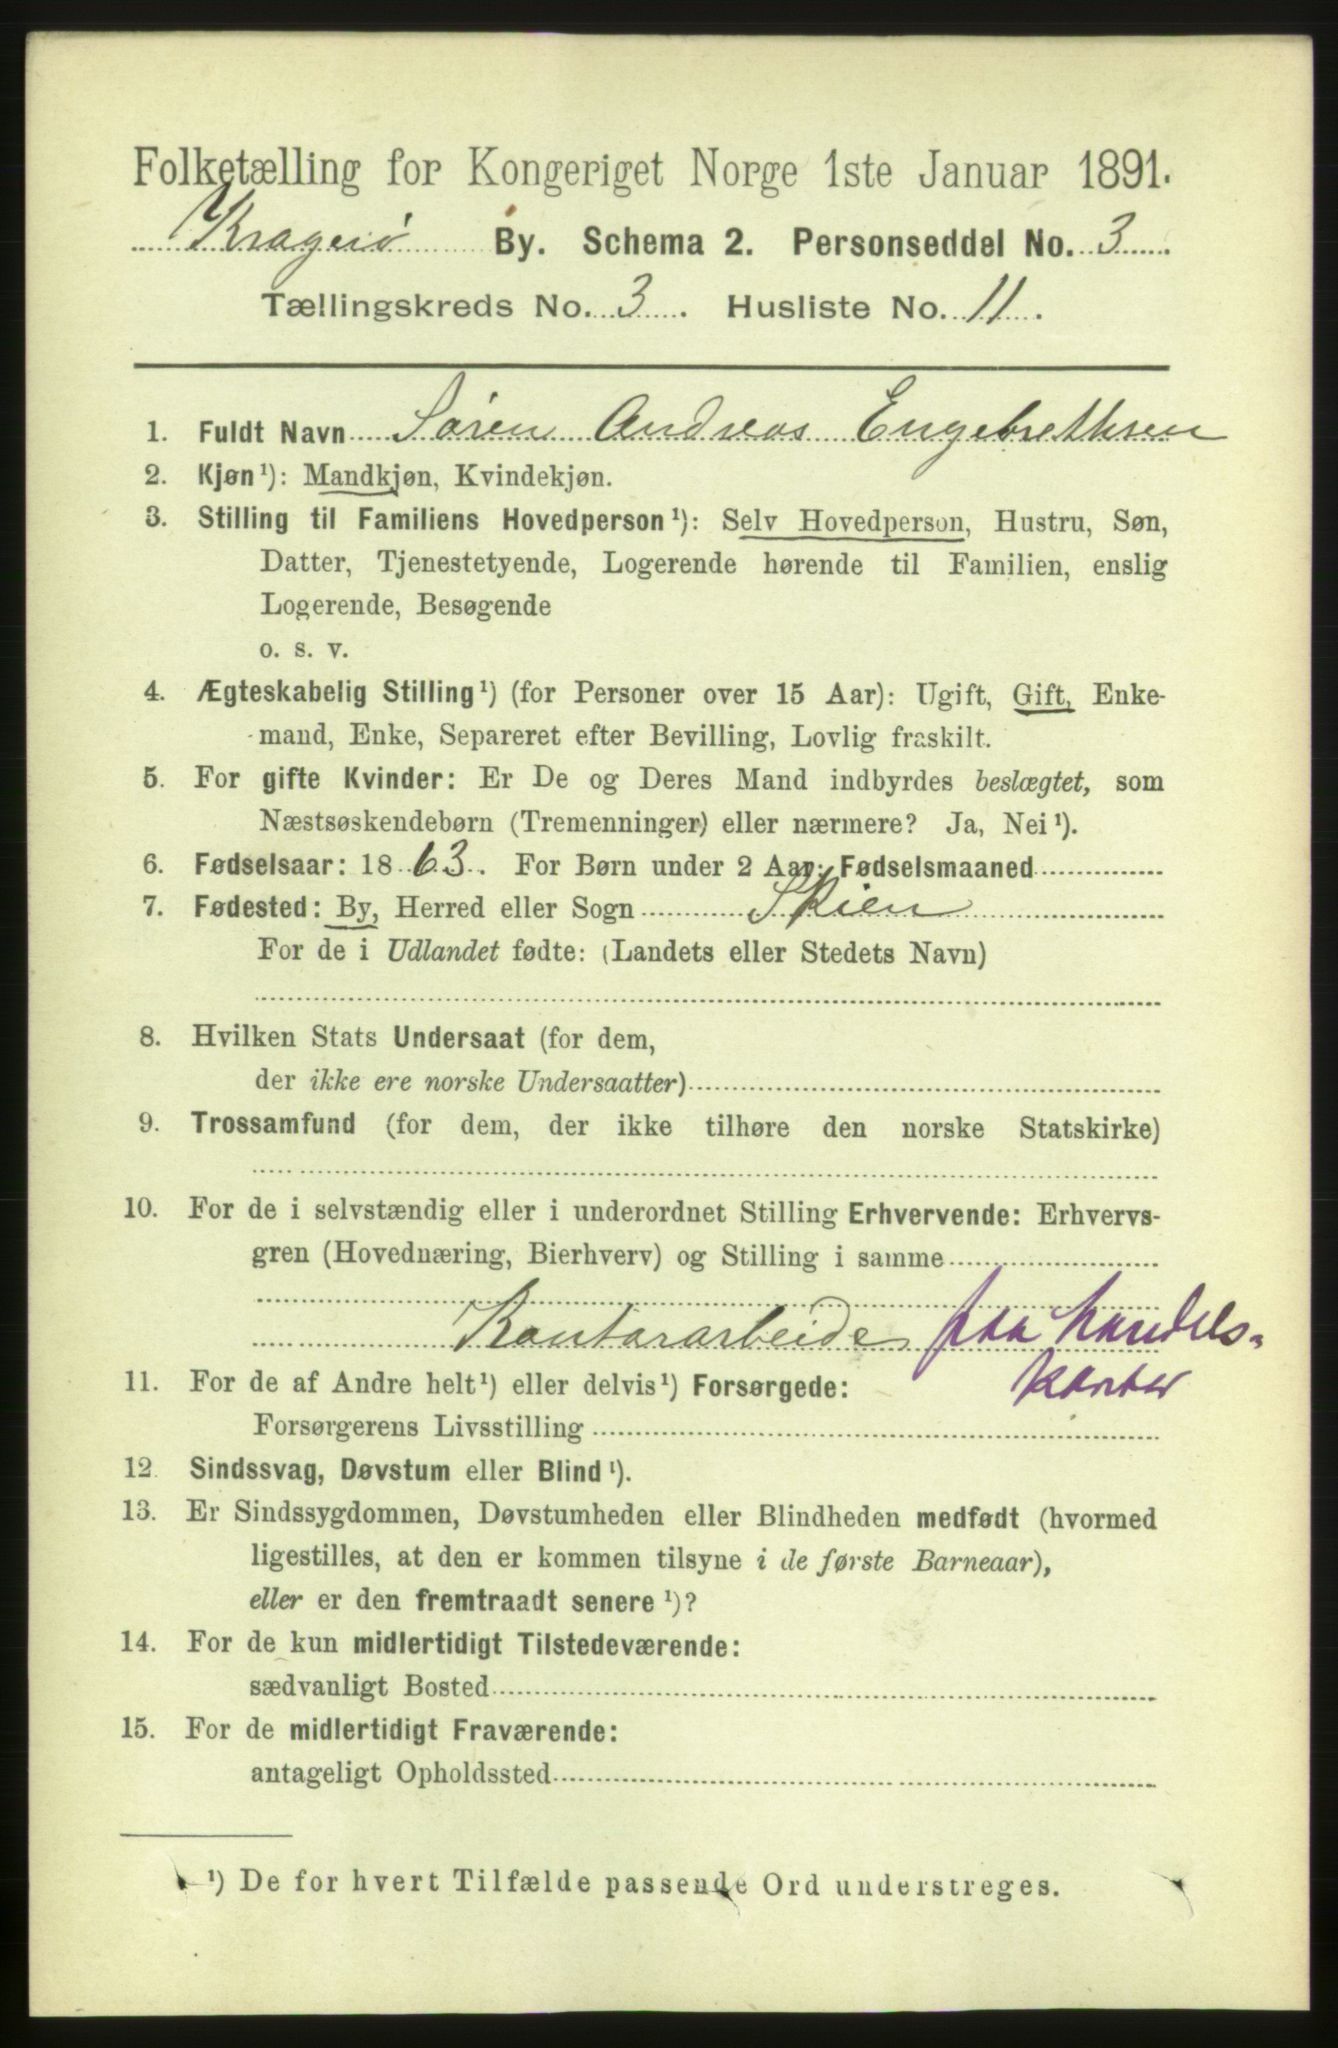 Folketælling for Kongeriget Norge 1ste Januar 1891.
Kragerø By. Schema 2. Personseddel No. 3
Tællingskreds No. 3. Husliste No. 11.
1. Fuldt Navn Søren Andreas Engebrethsen
2. Kjøn¹): Mandkjøn, Kvindekjøn.
3. Stilling til Familiens Hovedperson¹): Selv Hovedperson, Hustru, Søn,
Datter, Tjenestetyende, Logerende hørende til Familien, enslig
Logerende, Besøgende
o. s. v.
4. Ægteskabelig Stilling¹) (for Personer over 15 Aar): Ugift, Gift, Enke-
mand, Enke, Separeret efter Bevilling, Lovlig fraskilt.
5. For gifte Kvinder: Er De og Deres Mand indbyrdes beslægtet, som
Næstsøskendebørn (Tremenninger) eller nærmere? Ja, Nei¹).
6. Fødselsaar: 1863. For Børn under 2 Aar: Fødselsmaaned
7. Fødested: By, Herred eller Sogn Skien
For de i Udlandet fødte: (Landets eller Stedets Navn)
8. Hvilken Stats Undersaat (for dem,
der ikke ere norske Undersaatter)
9. Trossamfund (for dem, der ikke tilhøre den norske Statskirke)
10. For de i selvstændig eller i underordnet Stilling Erhvervende: Erhvervs-
gren (Hovednæring, Bierhverv) og Stilling i samme
Kontorarbeide paa Handels-
kontor
11. For de af Andre helt¹) eller delvis¹) Forsørgede:
Forsørgerens Livsstilling
12. Sindssvag, Døvstum eller Blind¹).
13. Er Sindssygdommen, Døvstumheden eller Blindheden medfødt (hvormed
ligestilles, at den er kommen tilsyne i de første Barneaar),
eller er den fremtraadt senere¹)?
14. For de kun midlertidigt Tilstedeværende:
sædvanligt Bosted
15. For de midlertidigt Fraværende:
antageligt Opholdssted
¹) De for hvert Tilfælde passende Ord understreges.